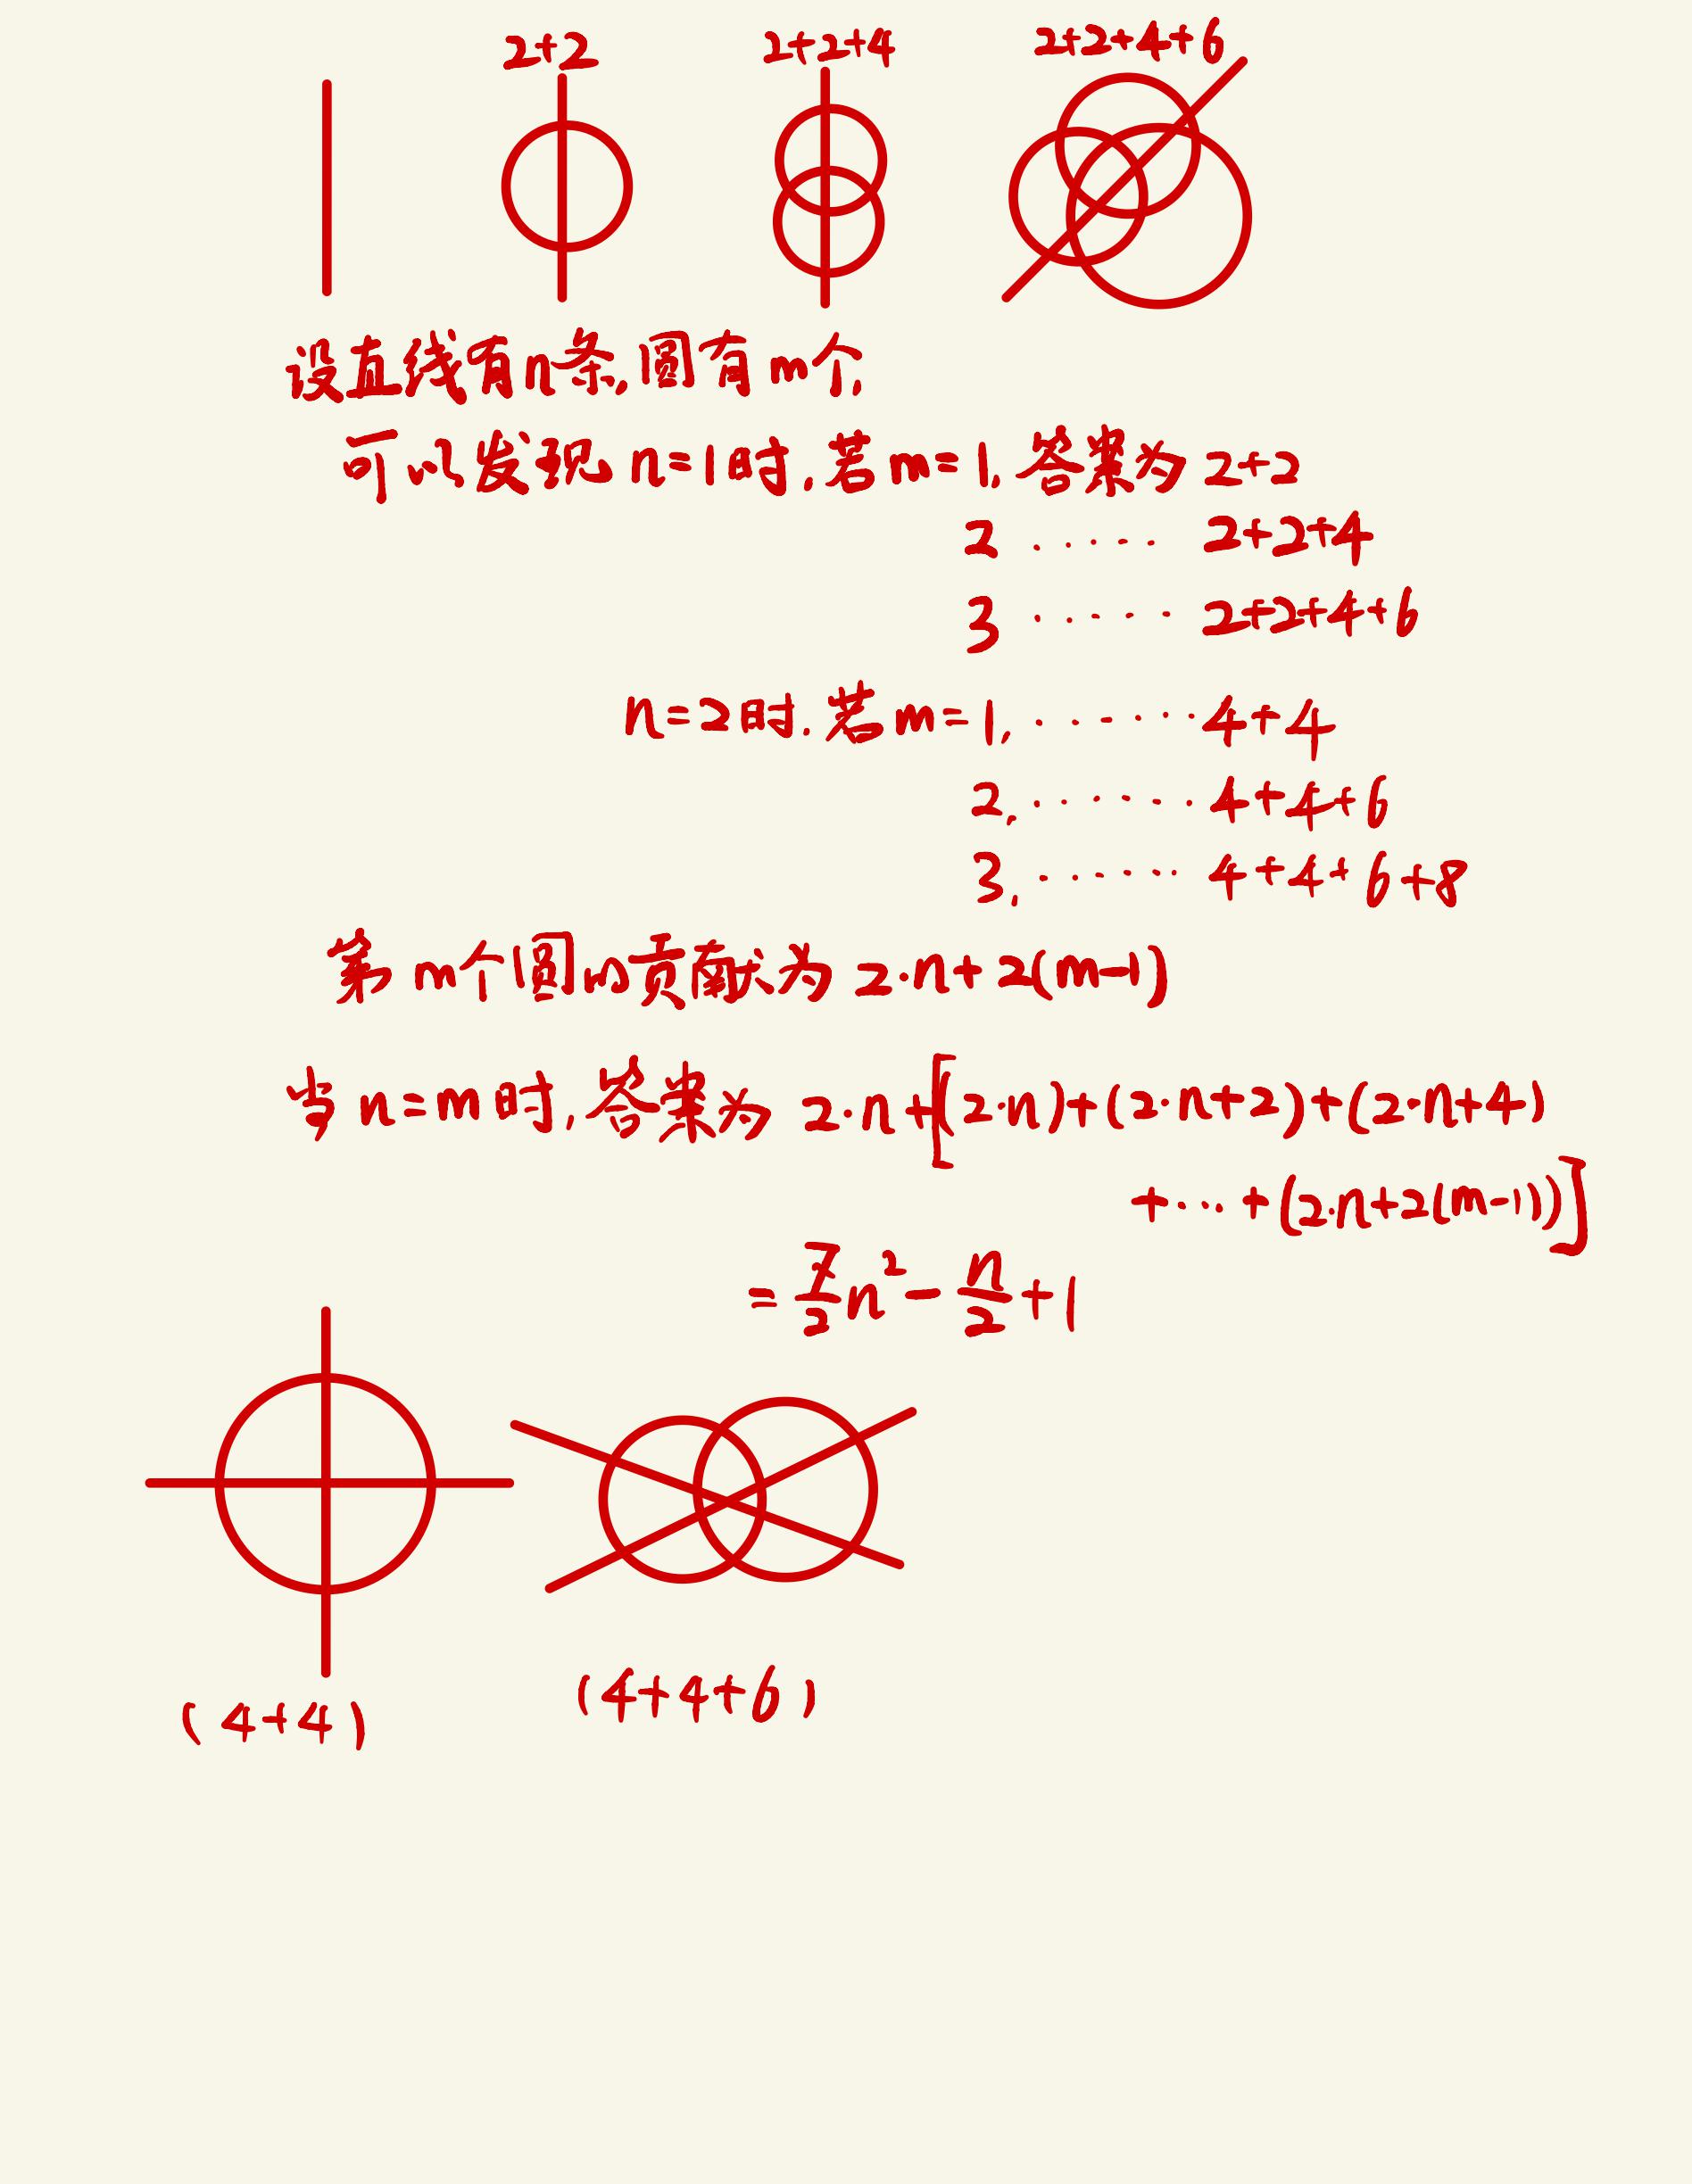 2+2 2+2+4 2+2+4+6
设直线有n条,圆有m个,
可以发现 n=1时,若m=1,答案为 2+2
2 ····· 2+2+4
3 ······ 2+2+4+6
n=2时,若m=1, ······· 4+4
2, ······· 4+4+6
3, ······ 4+4+6+8
第m个圆的贡献为 2·n+2(m-1)
当n=m时,答案为 2·n+[(2·n)+(2·n+2)+(2·n+4)
+···+(2·n+2(m-1))]
=7/2n²-n/2+1
(4+4) (4+4+6)